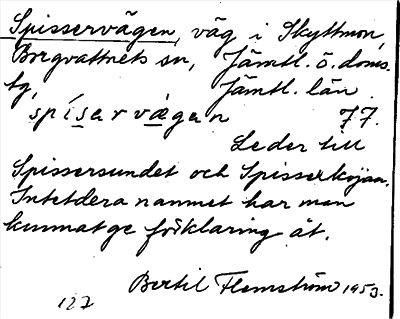 Spisservägen, väg i Skyttmon,
Borgvattnets sn, Jämtl. ö. doms.
tg, Jämtl. län
spísarvägan 77.
Leder till
Spissersundet och Spisserkojan.
Intetdera namnet har man
kunnat ge förklaring åt.
Bertil Flemström 1953.
127